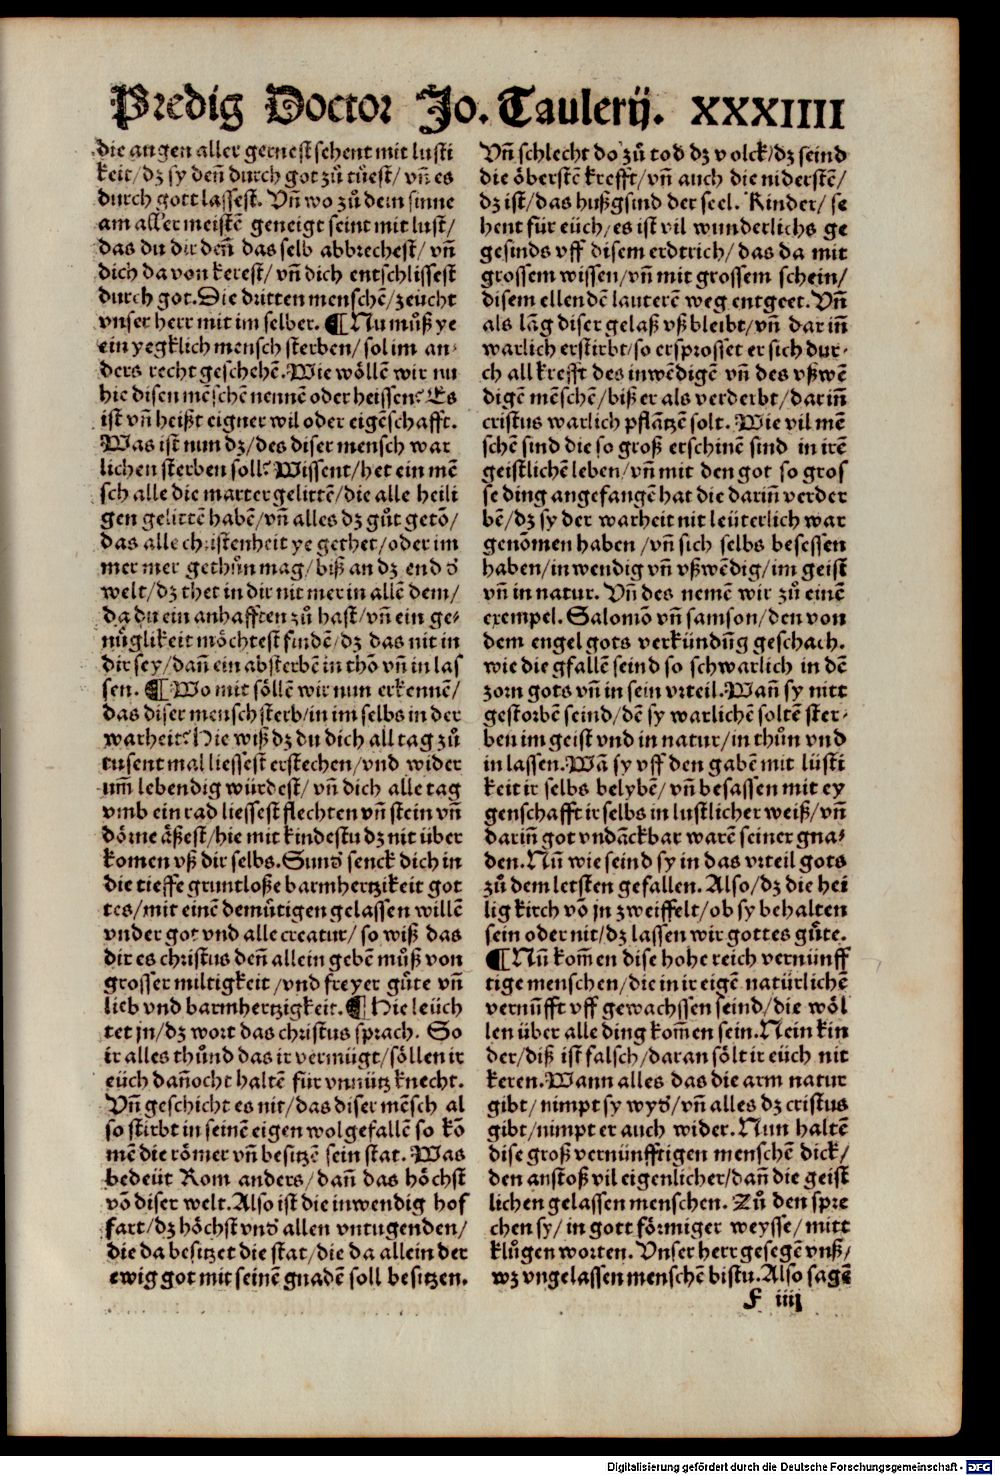 Predig Doctor Jo. Taulerij. XXXIIII
die augen aller gernest sehent mit lusti
keit/ dz sy deñ durch got zů tůest/ vñ es
durch gott lassest. Vñ wo zů dein sinne
am aller meistē geneigt seint mit lust/
das du dir deñ das selb abbrechest/ vñ
dich da von kerest/ vñ dich entschlissest
durch got. Die dritten menschē/ zeucht
vnser herr mit im selber. ¶ Nu můß ye
ein yegklich mensch sterben/ sol im an-
ders recht geschehē. Wie wöllē wir nu
hie disen mēschē nennē oder heissen? Es
ist vñ heißt eigner wil oder eigēschafft.
Was ist nun dz/ des diser mensch war
lichen sterben soll? Wissent/ het ein mē
sch alle die marter gelittē/ die alle heili
gen gelittē habē/ vñ alles dz gůt getō/
das alle christenheit ye gethet/ oder im
mer mer gethůn mag/ biß an dz end d'
welt/ dz thet in dir nit mer in allē dem/
da du ein anhafften zů hast/ vñ ein ge-
nůglikeit möchtest findē/ dz das nit in
dir sey/ dañ ein absterbē in thō vñ in las
sen. ¶ Wo mit söllē wir nun erkennē/
das diser mensch sterb/ in im selbs in der
warheit? Hie wiß dz du dich all tag zů
tusent mal liessest erstechen/ vnd wider
um̄ lebendig würdest/ vñ dich alle tag
vmb ein rad liessest flechten vñ stein vñ
dörne äßest/ hie mit kindestu dz nit über
komen vß dir selbs. Sund' senck dich in
die tieffe gruntloße barmhertzikeit got
tes/ mit einē demůtigen gelassen willē
vnder got vnd alle creatur/ so wiß das
dir es christus deñ allein gebē můß von
grosser miltigkeit/ vnd freyer gůte vñ
lieb vnd barmhertzigkeit. ¶ Hie leüch
tet jn/ dz wort das christus sprach. So
ir alles thůnd das ir vermügt/ söllen ir
eüch dañocht haltē für vnnütz knecht.
Vñ geschicht es nit/ das diser mēsch al
so stirbt in seinē eigen wolgefallē so kō
mē die römer vñ besitzē sein stat. Was
bedeüt Rom anders/ dañ das höchst
vō diser welt. Also ist die inwendig hof
fart/ dz höchst vnd' allen vntugenden/
die da besitzet die stat/ die da allein der
ewig got mit seinē gnadē soll besitzen.
Vñ schlecht do zů tod dz volck/ dz seind
die öberstē krefft/ vñ auch die niderstē/
dz ist/ das hußgsind der seel. Kinder/ se
hent für eüch/ es ist vil wunderlichs ge
gesinds vff disem erdtrich/ das da mit
grossem wissen/ vñ mit grossem schein/
disem ellendē lauterē weg entgeet. Vñ
als lāg diser gelaß vß bleibt/ vñ dar iñ
warlich erstirbt/ so ersprosset er sich dur-
ch all krefft des inwēdigē vñ des vßwē
digē mēschē/ biß er als verderbt/ dariñ
cristus warlich pflātzē solt. Wie vil mē
schē sind die so groß erschinē sind in irē
geistlichē leben/ vñ mit den got so gros
se ding angefangē hat die dariñ verder
bē/ dz sy der warheit nit leüterlich war
genōmen haben/ vñ sich selbs besessen
haben/ inwendig vñ vßwēdig/ im geist
vñ in natur. Vñ des nemē wir zů einē
exempel. Salomō vñ samson/ den von
dem engel gots verkündūg geschach.
wie die gfallē seind so schwarlich in dē
zorn gots vñ in sein vrteil. Wañ sy nitt
gestorbē seind/ dē sy warlichē soltē ster-
ben im geist vnd in natur/ in thůn vnd
in lassen. Wā sy vff den gabē mit lüsti
keit ir selbs belybē/ vñ besassen mit ey
genschafft ir selbs in lustlicher weiß/ vñ
dariñ got vndāckbar warē seiner gna-
den. Nū wie seind sy in das vrteil gots
zů dem letsten gefallen. Also/ dz die hei
lig kirch vō jn zweiffelt/ ob sy behalten
sein oder nit/ dz lassen wir gottes gůte.
¶ Nū kom̄en dise hohe reich vernünff
tige menschen/ die in ir eigē natürlichē
vernūfft vff gewachssen seind/ die wöl
len über alle ding kom̄en sein. Nein kin
der/ diß ist falsch/ daran sölt ir eüch nit
keren. Wann alles das die arm natur
gibt/ nimpt sy wyd'/ vñ alles dz cristus
gibt/ nimpt er auch wider. Nun haltē
dise groß vernünfftigen menschē dick/
den anstoß vil eigenlicher/ dañ die geist
lichen gelassen menschen. Zů den spre
chen sy/ in gott förmiger weysse/ mitt
klůgen worten. Vnser herr gesegē vnß/
wz vngelassen menschē bistu. Also sagē
F iiij
Digitalisierung gefördert durch die Deutsche Forschungsgemeinschaft - DFG